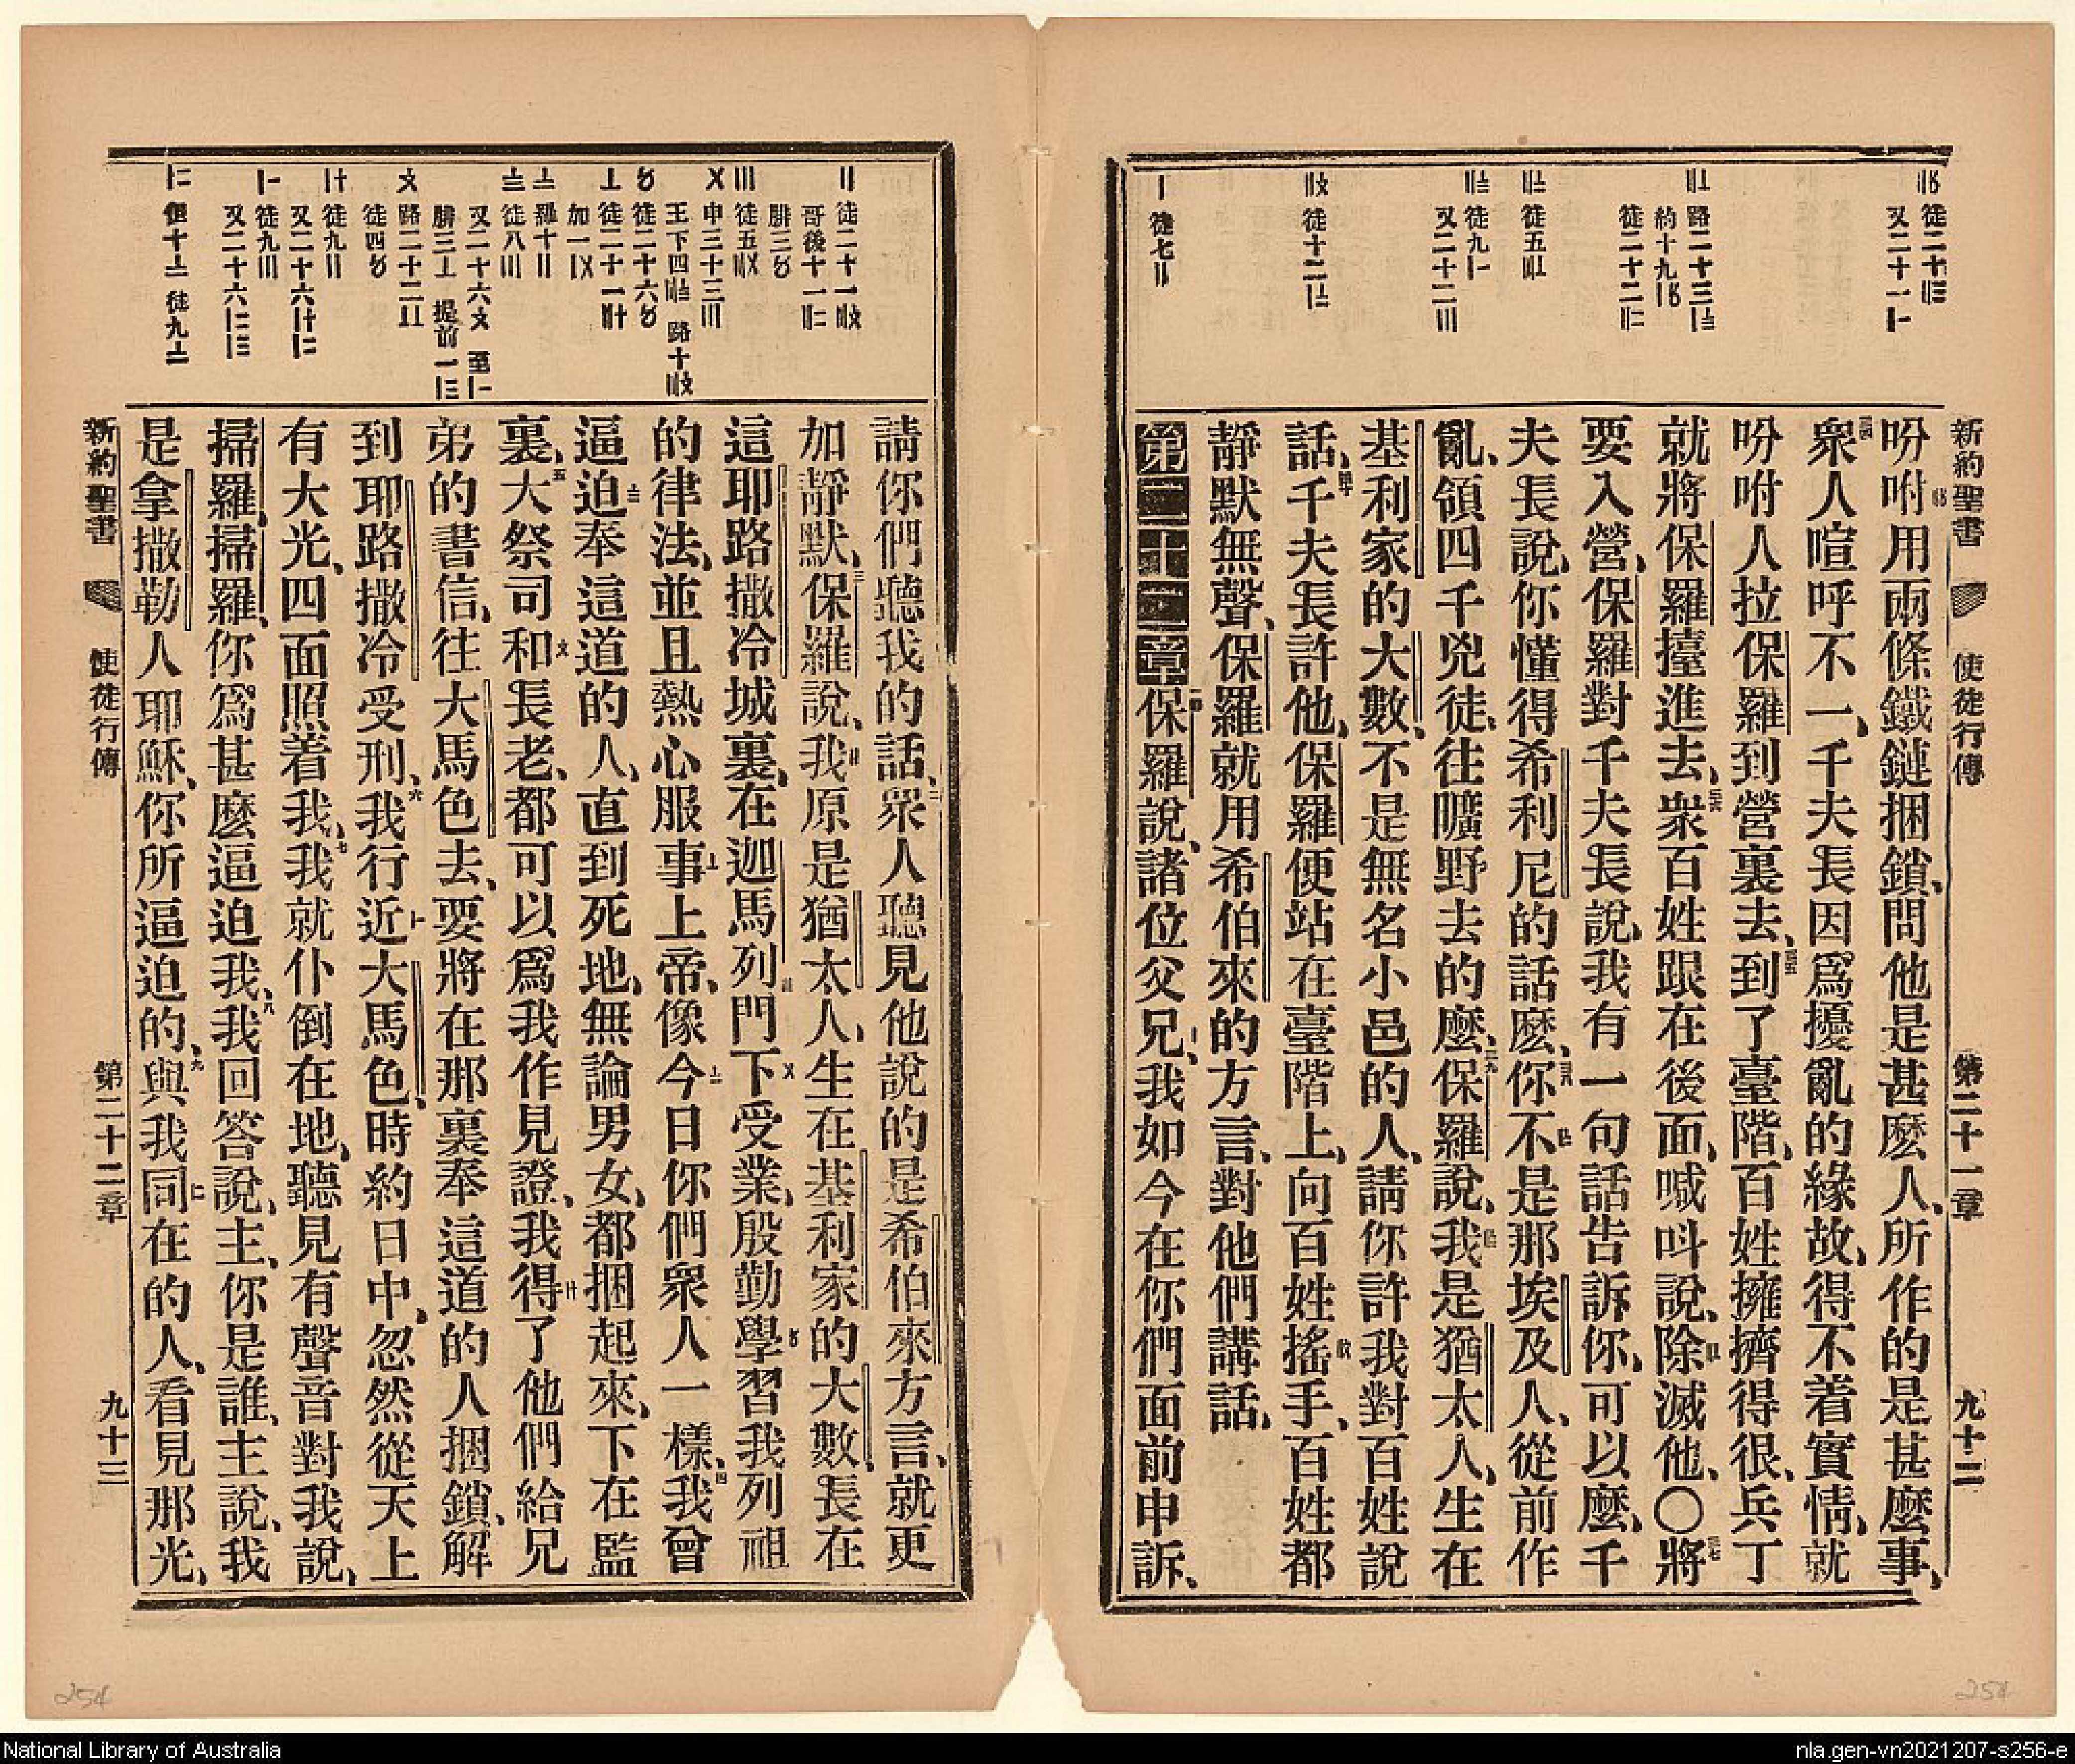 新約聖書 使徒行傳 第二十一章 九十二
徒二十
又二十一
路二十三
約十九
徒二十二
徒五
徒九
又二十二
徒十二
徒七
吩咐用兩條鐵鏈捆鎖、問他是甚麼人、所作的是甚麼事、
三四衆人喧呼不一、千夫長因爲擾亂的緣故、得不着實情、就
吩咐人拉保羅到營裏去、三五到了臺階、百姓擁擠得很、兵丁
就將保羅擡進去、三六衆百姓跟在後面、喊叫說、除滅他、〇三七將
要入營、保羅對千夫長說、我有一句話告訴你、可以麼、千
夫長說、你懂得希利尼的話麼、三八你不是那埃及人、從前作
亂、領四千兇徒、往曠野去的麼、三九保羅說、我是猶太人、生在
基利家的大數、不是無名小邑的人、請你許我對百姓說
話、四十千夫長許他、保羅便站在臺階上、向百姓搖手、百姓都
靜默無聲、保羅就用希伯來的方言、對他們講話、
第二十二章 一保羅說、諸位父兄、我如今在你們面前申訴、
徒二十一
哥後十一
腓三
徒五
申三十三
王下四 路十
徒二十六
徒二十一
加一
羅十
徒八
又二十六 至
腓三 提前一
路二十二
徒四
徒九
又二十六
徒九
又二十六
但十 徒九
請你們聽我的話、二衆人聽見他說的是希伯來方言、就更
加靜默、三保羅說、我原是猶太人、生在基利家的大數、長在
這耶路撒冷城裏、在迦馬列門下受業、殷勤學習我列祖
的律法、並且熱心服事上帝、像今日你們衆人一樣、四我曾
逼迫奉這道的人、直到死地、無論男女、都捆起來、下在監
裏、五大祭司和長老、都可以爲我作見證、我得了他們給兄
弟的書信、往大馬色去、要將在那裏奉這道的人捆鎖、解
到耶路撒冷受刑、六我行近大馬色、時約日中、忽然從天上
有大光、四面照着我、七我就仆倒在地、聽見有聲音對我說、
掃羅、掃羅、你爲甚麼逼迫我、八我回答說、主、你是誰、主說、我
是拿撒勒人耶穌、你所逼迫的、九與我同在的人、看見那光、
新約聖書 使徒行傳 第二十二章 九十三
254
254
National Library of Australia
nla.gen-vn2021207-s256-e